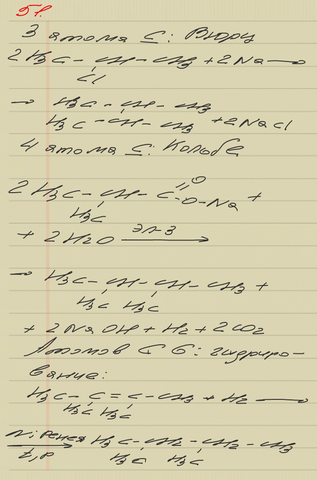 51.
3 атома C: Вюрц
2H3C - CH - CH3 + 2Na →
Cl
→ H3C - CH - CH3
H3C - CH - CH3 + 2NaCl
4 атома C: Кольбе
O
2H3C - CH - C - O - Na +
H3C
+ 2H2O эл-з →
→ H3C - CH - CH - CH3 +
H3C H3C
+ 2NaOH + H2 + 2CO2
Атомов C 6: гидриро-
вание:
H3C - C = C - CH3 + H2 →
H3C H3C
Ni; Реnея H3C - CH - CH - CH3
t, p H3C H3C